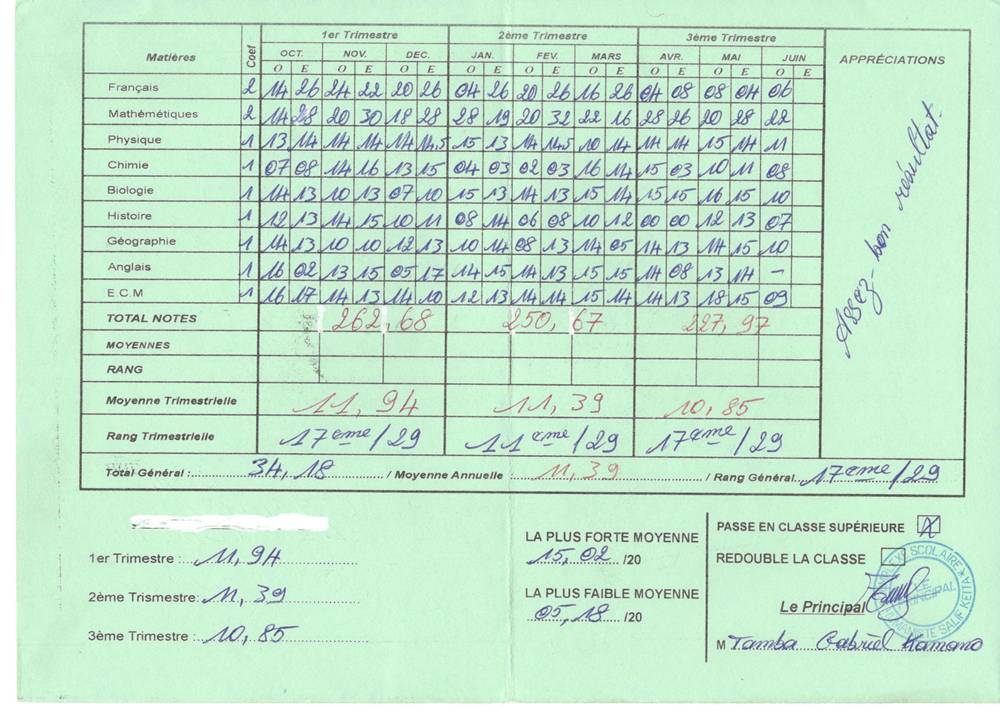 1er Trimestre 2ème Trimestre 3ème Trimestre
Matières Coef OCT. NOV. DEC. JAN. FEV. MARS AVR. MAI JUIN APPRÉCIATIONS
O E O E O E O E O E O E O E O E O E
Français 2 14 26 24 22 20 26 04 26 20 26 16 26 04 08 08 04 06
Mathémétiques 2 14 28 20 30 18 28 28 19 20 32 22 16 28 26 20 28 22
Physique 1 13 14 14 14 14 14,5 15 13 14 14,5 10 14 14 14 15 14 11
Chimie 1 07 08 14 16 13 15 04 03 02 03 16 14 15 03 10 11 08
Biologie 1 14 13 10 13 07 10 15 13 14 13 15 14 15 15 16 15 10
Histoire 1 12 13 14 15 10 11 08 14 06 08 10 12 00 00 12 13 07
Géographie 1 14 13 10 10 12 13 10 14 08 13 14 05 14 13 14 15 10
Anglais 1 16 02 13 15 05 17 14 15 14 13 15 15 14 08 13 14 -
E.C.M 1 16 17 14 13 14 10 12 13 14 14 15 14 14 13 18 15 09
Assez-bon résultat.
TOTAL NOTES 262,68 250,67 227,97
MOYENNES
RANG
Moyenne Trimestrielle 11,94 11,39 10,85
Rang Trimestrielle 17ème/29 11ème/29 17ème/29
Total Général : 34,18 / Moyenne Annuelle : 11,39 / Rang Général 17ème/29
1er Trimestre : 11,94
2ème Trismestre: 11,39
3ème Trimestre : 10,85
LA PLUS FORTE MOYENNE
15,02 /20
LA PLUS FAIBLE MOYENNE
05,18 /20
PASSE EN CLASSE SUPÉRIEURE X
REDOUBLE LA CLASSE
Le Principal
SCOLAIRE
LE PRINCIPAL
SALIF KEITA
M Tamba Gabriel Kamano